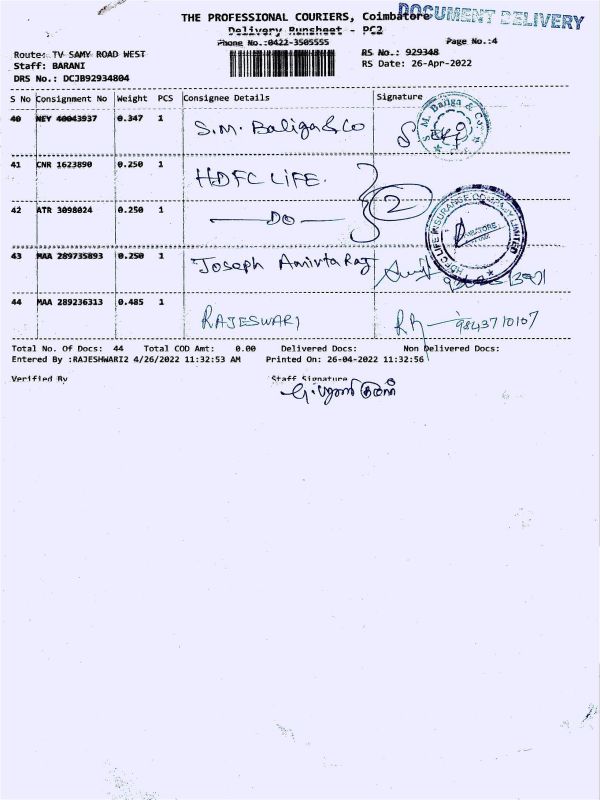 DOCUMENT DELIVERY
THE PROFESSIONAL COURIERS, Coimbatore
Delivery Runsheet - PC2
Phone No.:0422-3505555 Page No.:4
Route: TV SAMY ROAD WEST RS No.: 929348
Staff: BARANI RS Date: 26-Apr-2022
DRS No.: DCJB92934804
S No Consignment No Weight PCS Consignee Details Signature
40 NEY 40043937 0.347 1 S.M. Baliga & Co
41 CNR 1623890 0.250 1 HDFC LIFE. 2
42 ATR 3098024 0.250 1 —DO—
HDFC LIFE INSURANCE COMPANY LIMITED
43 MAA 289735893 0.250 1 Joseph Amirta Raj
44 MAA 289236313 0.485 1 RAJESWARI 9843710107
Total No. Of Docs: 44 Total COD Amt: 0.00 Delivered Docs: Non Delivered Docs:
Entered By :RAJESHWARI2 4/26/2022 11:32:53 AM Printed On: 26-04-2022 11:32:56
Verified By Staff Signature